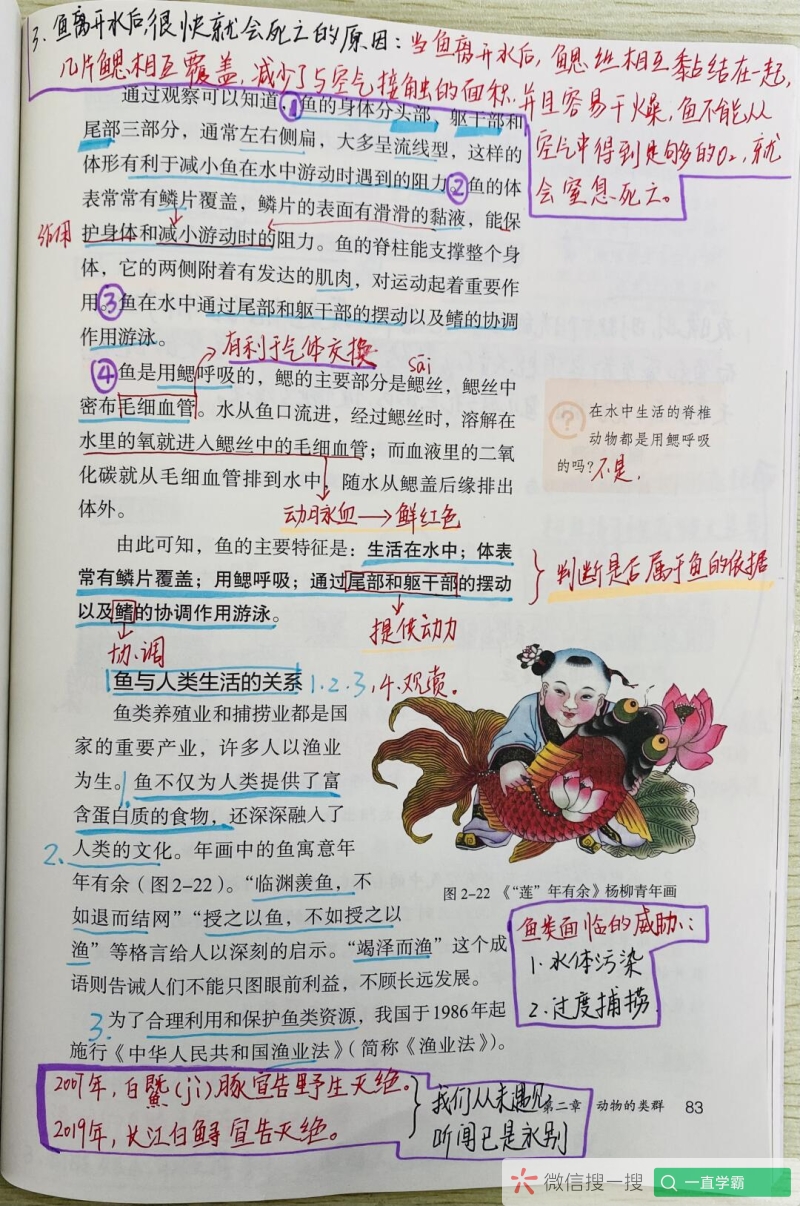 3、鱼离开水后,很快就会死亡的原因：当鱼离开水后，鳃丝相互黏结在一起，
几片鳃相互覆盖，减少了与空气接触的面积，并且容易干燥，鱼不能从
空气中得到足够的O₂，就
会窒息死亡。
通过观察可以知道，①鱼的身体分头部、躯干部和
尾部三部分，通常左右侧扁，大多呈流线型，这样的
体形有利于减小鱼在水中游动时遇到的阻力。②鱼的体
表常常有鳞片覆盖，鳞片的表面有滑滑的黏液，能保
作用
护身体和减小游动时的阻力。鱼的脊柱能支撑整个身
体，它的两侧附着有发达的肌肉，对运动起着重要作
用。③鱼在水中通过尾部和躯干部的摆动以及鳍的协调
作用游泳。
有利于气体交换
sāi
④鱼是用鳃呼吸的，鳃的主要部分是鳃丝，鳃丝中
密布毛细血管。水从鱼口流进，经过鳃丝时，溶解在
水里的氧就进入鳃丝中的毛细血管；而血液里的二氧
化碳就从毛细血管排到水中，随水从鳃盖后缘排出
体外。
动脉血→鲜红色
?
在水中生活的脊椎
动物都是用鳃呼吸
的吗？不是.
由此可知，鱼的主要特征是：生活在水中；体表
常有鳞片覆盖；用鳃呼吸；通过尾部和躯干部的摆动
以及鳍的协调作用游泳。
判断是否属于鱼的依据
协调
提供动力
鱼与人类生活的关系 1.2.3,4.观赏。
鱼类养殖业和捕捞业都是国
家的重要产业，许多人以渔业
为生。1.鱼不仅为人类提供了富
含蛋白质的食物，还深深融入了
2.人类的文化。年画中的鱼寓意年
年有余（图2-22）。“临渊羡鱼，不
如退而结网”“授之以鱼，不如授之以
渔”等格言给人以深刻的启示。“竭泽而渔”这个成
语则告诫人们不能只图眼前利益，不顾长远发展。
3.为了合理利用和保护鱼类资源，我国于1986年起
施行《中华人民共和国渔业法》（简称《渔业法》）。
图2-22 《“莲”年有余》杨柳青年画
鱼类面临的威胁：
1.水体污染
2.过度捕捞
2007年，白鱀(jì)豚宣告野生灭绝。
2019年，长江白鲟宣告灭绝。
我们从未遇见,
听闻已是永别
第二章 动物的类群 83
微信搜一搜
一直学霸